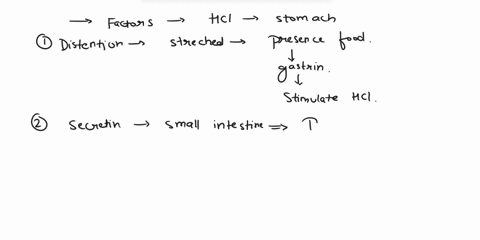 → Factors → HCl → stomach
① Distention → streched → presence food.
↓
gastrin.
↓
Stimulate HCl.
② Secretin → small intestine ⇒